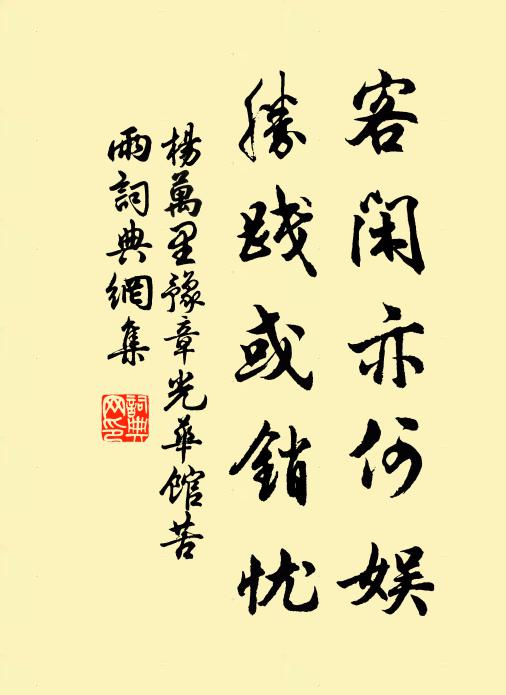 客闲亦何娱
勝践或銷忧
楊萬里豫章光華館苦
雨詞典網集
詞典
网印